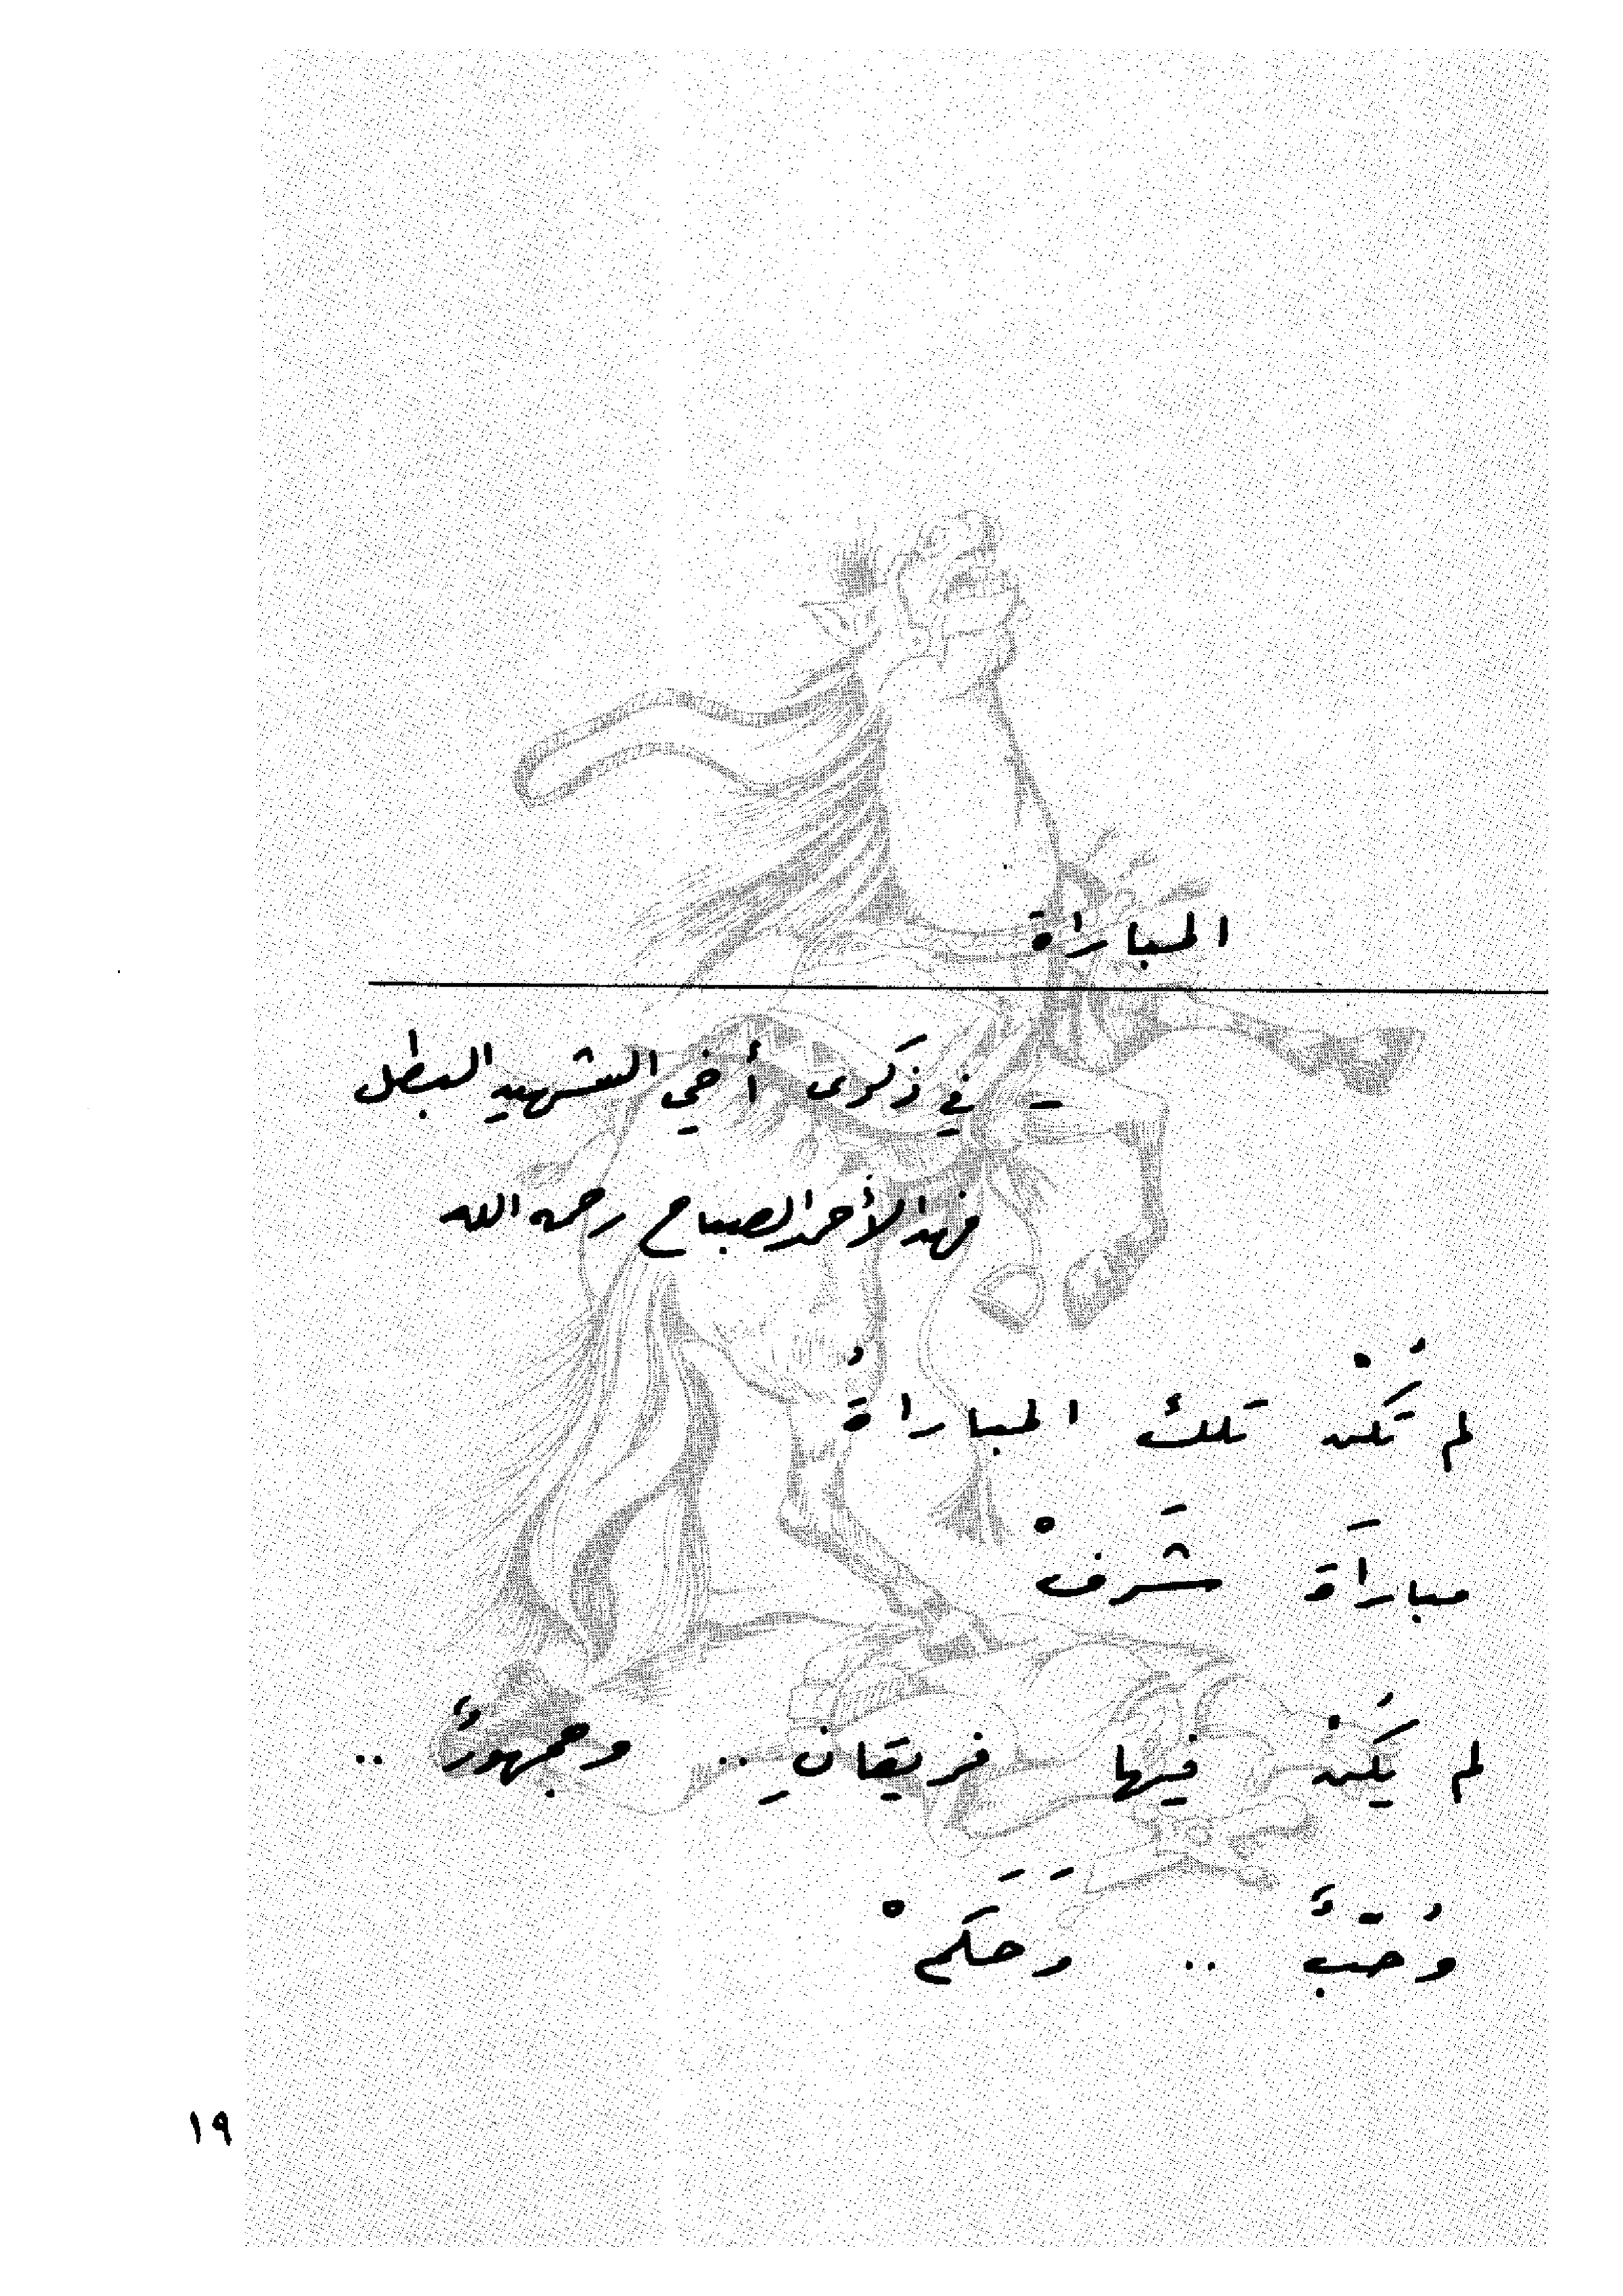 المباراة
- في ذكَرى أخي الشهيد البطل
فهد الأحمد الصباح رحمه الله
لم تكُنْ تلك المباراةُ
مباراَة شَرفْ
لم يكُنْ فيها فريقانِ .. وجمهورٌ ..
وحُبٌّ .. وَحَكَمْ
١٩